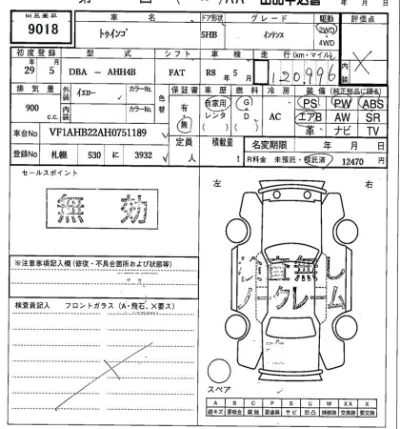 車名 ドア形状 グレード 駆動 評価点
9018 トゥインゴ 5HB インテンス 2WD 4WD
初度登録 型式 シフト 車検 走行(km・マイル) 内装
29 5 DBA - AHH4B FAT R8 5月 120,996
排気量 外装 カラーNo. 色替 保証書 車歴 燃料 冷房 装備(純正部品に限る)
900 cc. イエロー 有 自家用 G PS PW ABS
内装 カラーNo. 無 レンタ D AC エアB AW SR
( ) ( ) 革 ナビ TV
車台No VF1AHB22AH0751189 定員 積載量 名変期限 年 月 日
登録No 札幌 530 に 3932 人 t R料金 未預託・預託済 12470 円
セールスポイント
無効
左 右
※注意事項記入欄(修復・不具合箇所および状態等)
検査員記入 フロントガラス(A・飛石、X要ス)
ノークレーム
スペア
A B C P S U W X XX